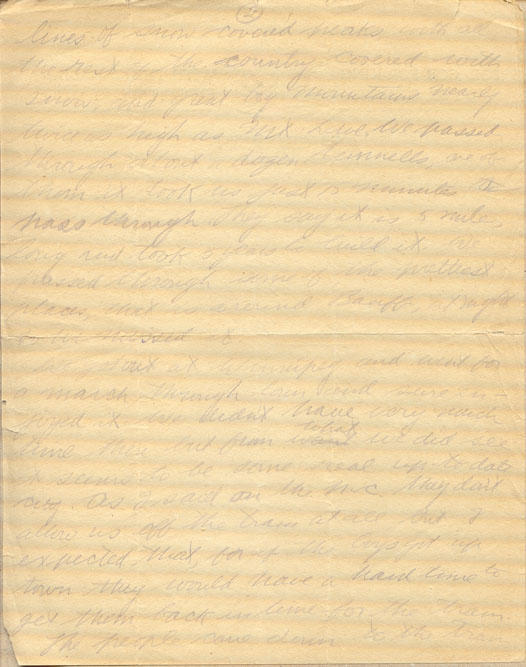 lines of snow covered peaks with all
the rest of the country covered with
snow, and great big mountains nearly
twice as high as Mt We passed
through about a dozen tunnells, one of
them it took us just 15 minutes to
pass through they say it is 5 miles
long and took years to build it. We
passed through some of the prettiest
places, that is around Banff, at night
so we missed it
We got out at Winnipeg and went for
a march through town and sure en-
joyed it we didn't have very much
time there but from what we did see
it seems to be some real up to date
city. As I said on the they don't
allow us off the train at all but I
expected that, for if the boys got up
town they would have a hard time to
get them back in time for the train.
The people came down to the train